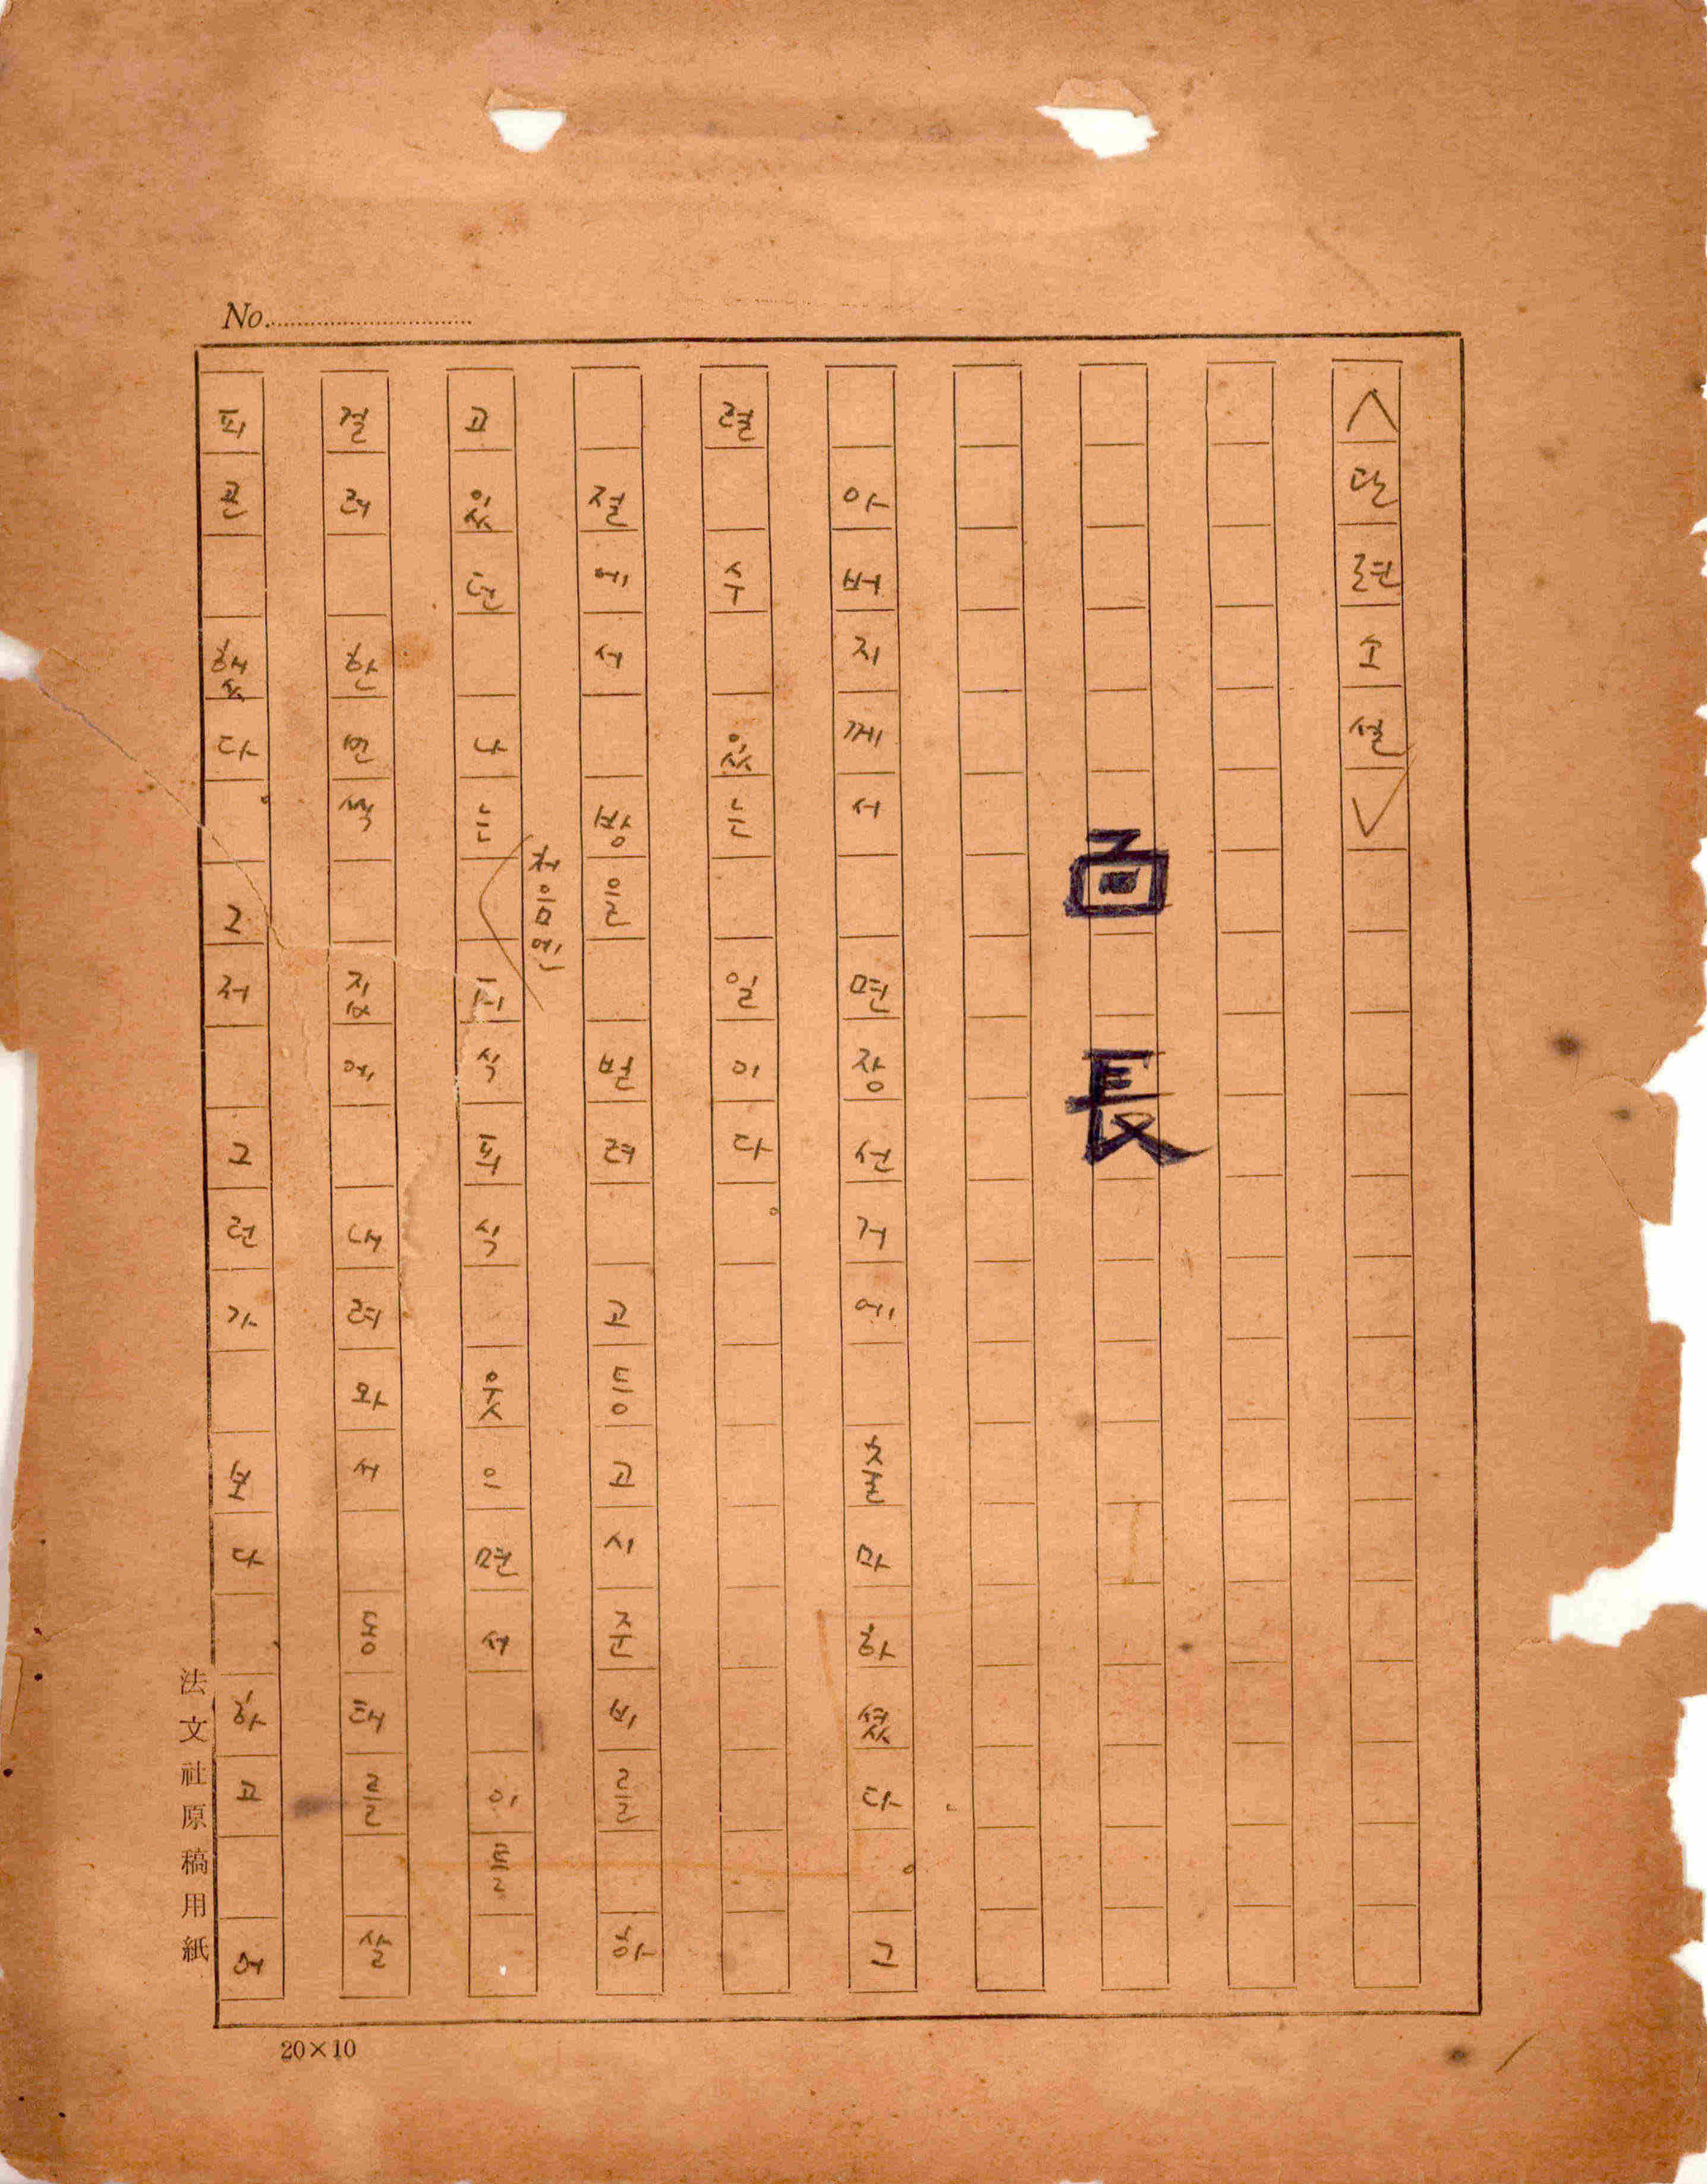 〈단련소설〉
面長
아버지께서 면장선거에 출마하셨다. 그
럴 수 있는 일이다.
절에서 방을 빌려 고등고시준비를 하
처음엔
고 있던 나는 피식피식 웃으면서 이틀
걸러 한번씩 집에 내려와서 동태를 살
피곤 했다. 그저 그런가 보다 하고 여
No.
法文社原稿用紙
20×10